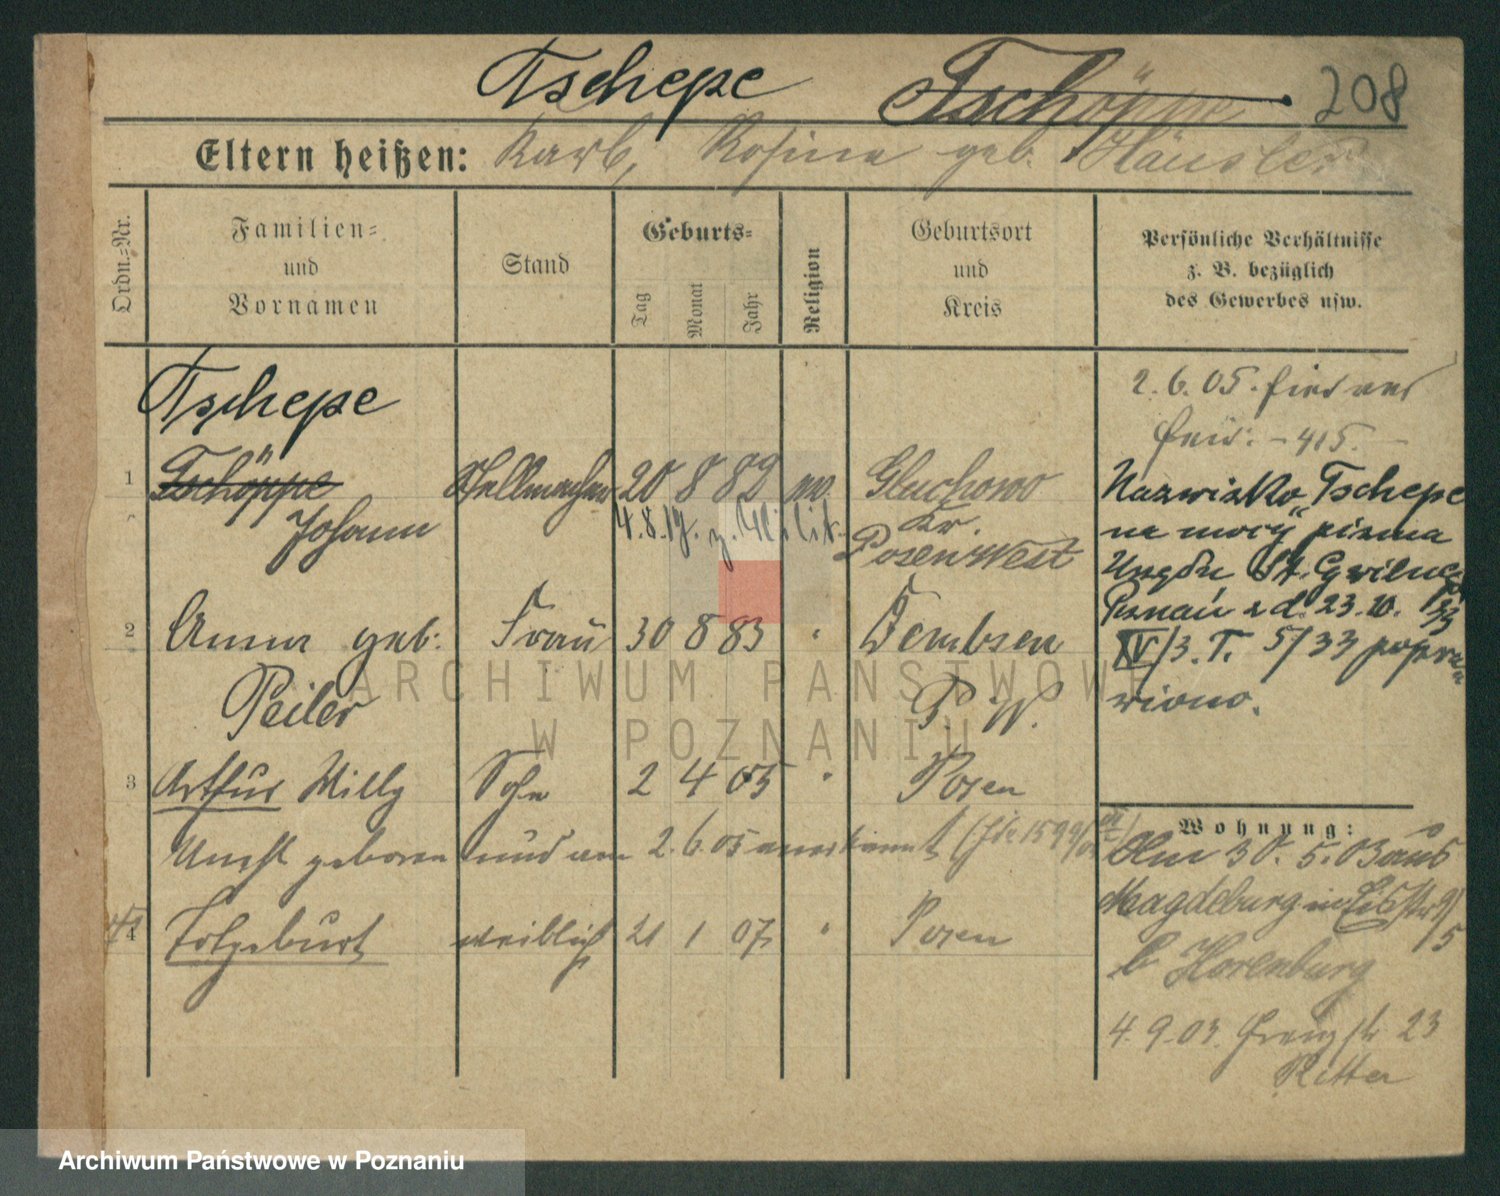 Tschepe Tschöppe 208
Eltern heißen: Karl, Rosina geb. Häusler
Ordn.-Nr.
Familien- und Vornamen
Stand
Geburts-
Tag Monat Jahr
Religion
Geburtsort und Kreis
Persönliche Verhältnisse
z. B. bezüglich
des Gewerbes usw.
Tschepe
1 Tschöppe Stellmacher 20 8 82 Gluchowo
Johann Kr.
4.8.17. z. Milit. Posen West
2 Anna geb: Frau 30 8 83 " Dembsen
Peiler P. W.
3 Arthur Willy Sohn 2 4 05 " Posen
Unehl geboren und am 2.6.05 anerkannt
4 Totgeburt weiblich 21 1 07 " Posen
2.6.05.
415.
Nazwisko "Tschepe"
na mocy pisma
Urzędu St. Cywilnego
Poznań z d. 23.10.33
IV/3.T. 5/33 popra-
wiono.
Wohnung:
Am 30.5.03 aus
Magdeburg in
b Horenburg
4.9.03. 23
Ritter
ARCHIWUM PAŃSTWOWE
W POZNANIU
Archiwum Państwowe w Poznaniu